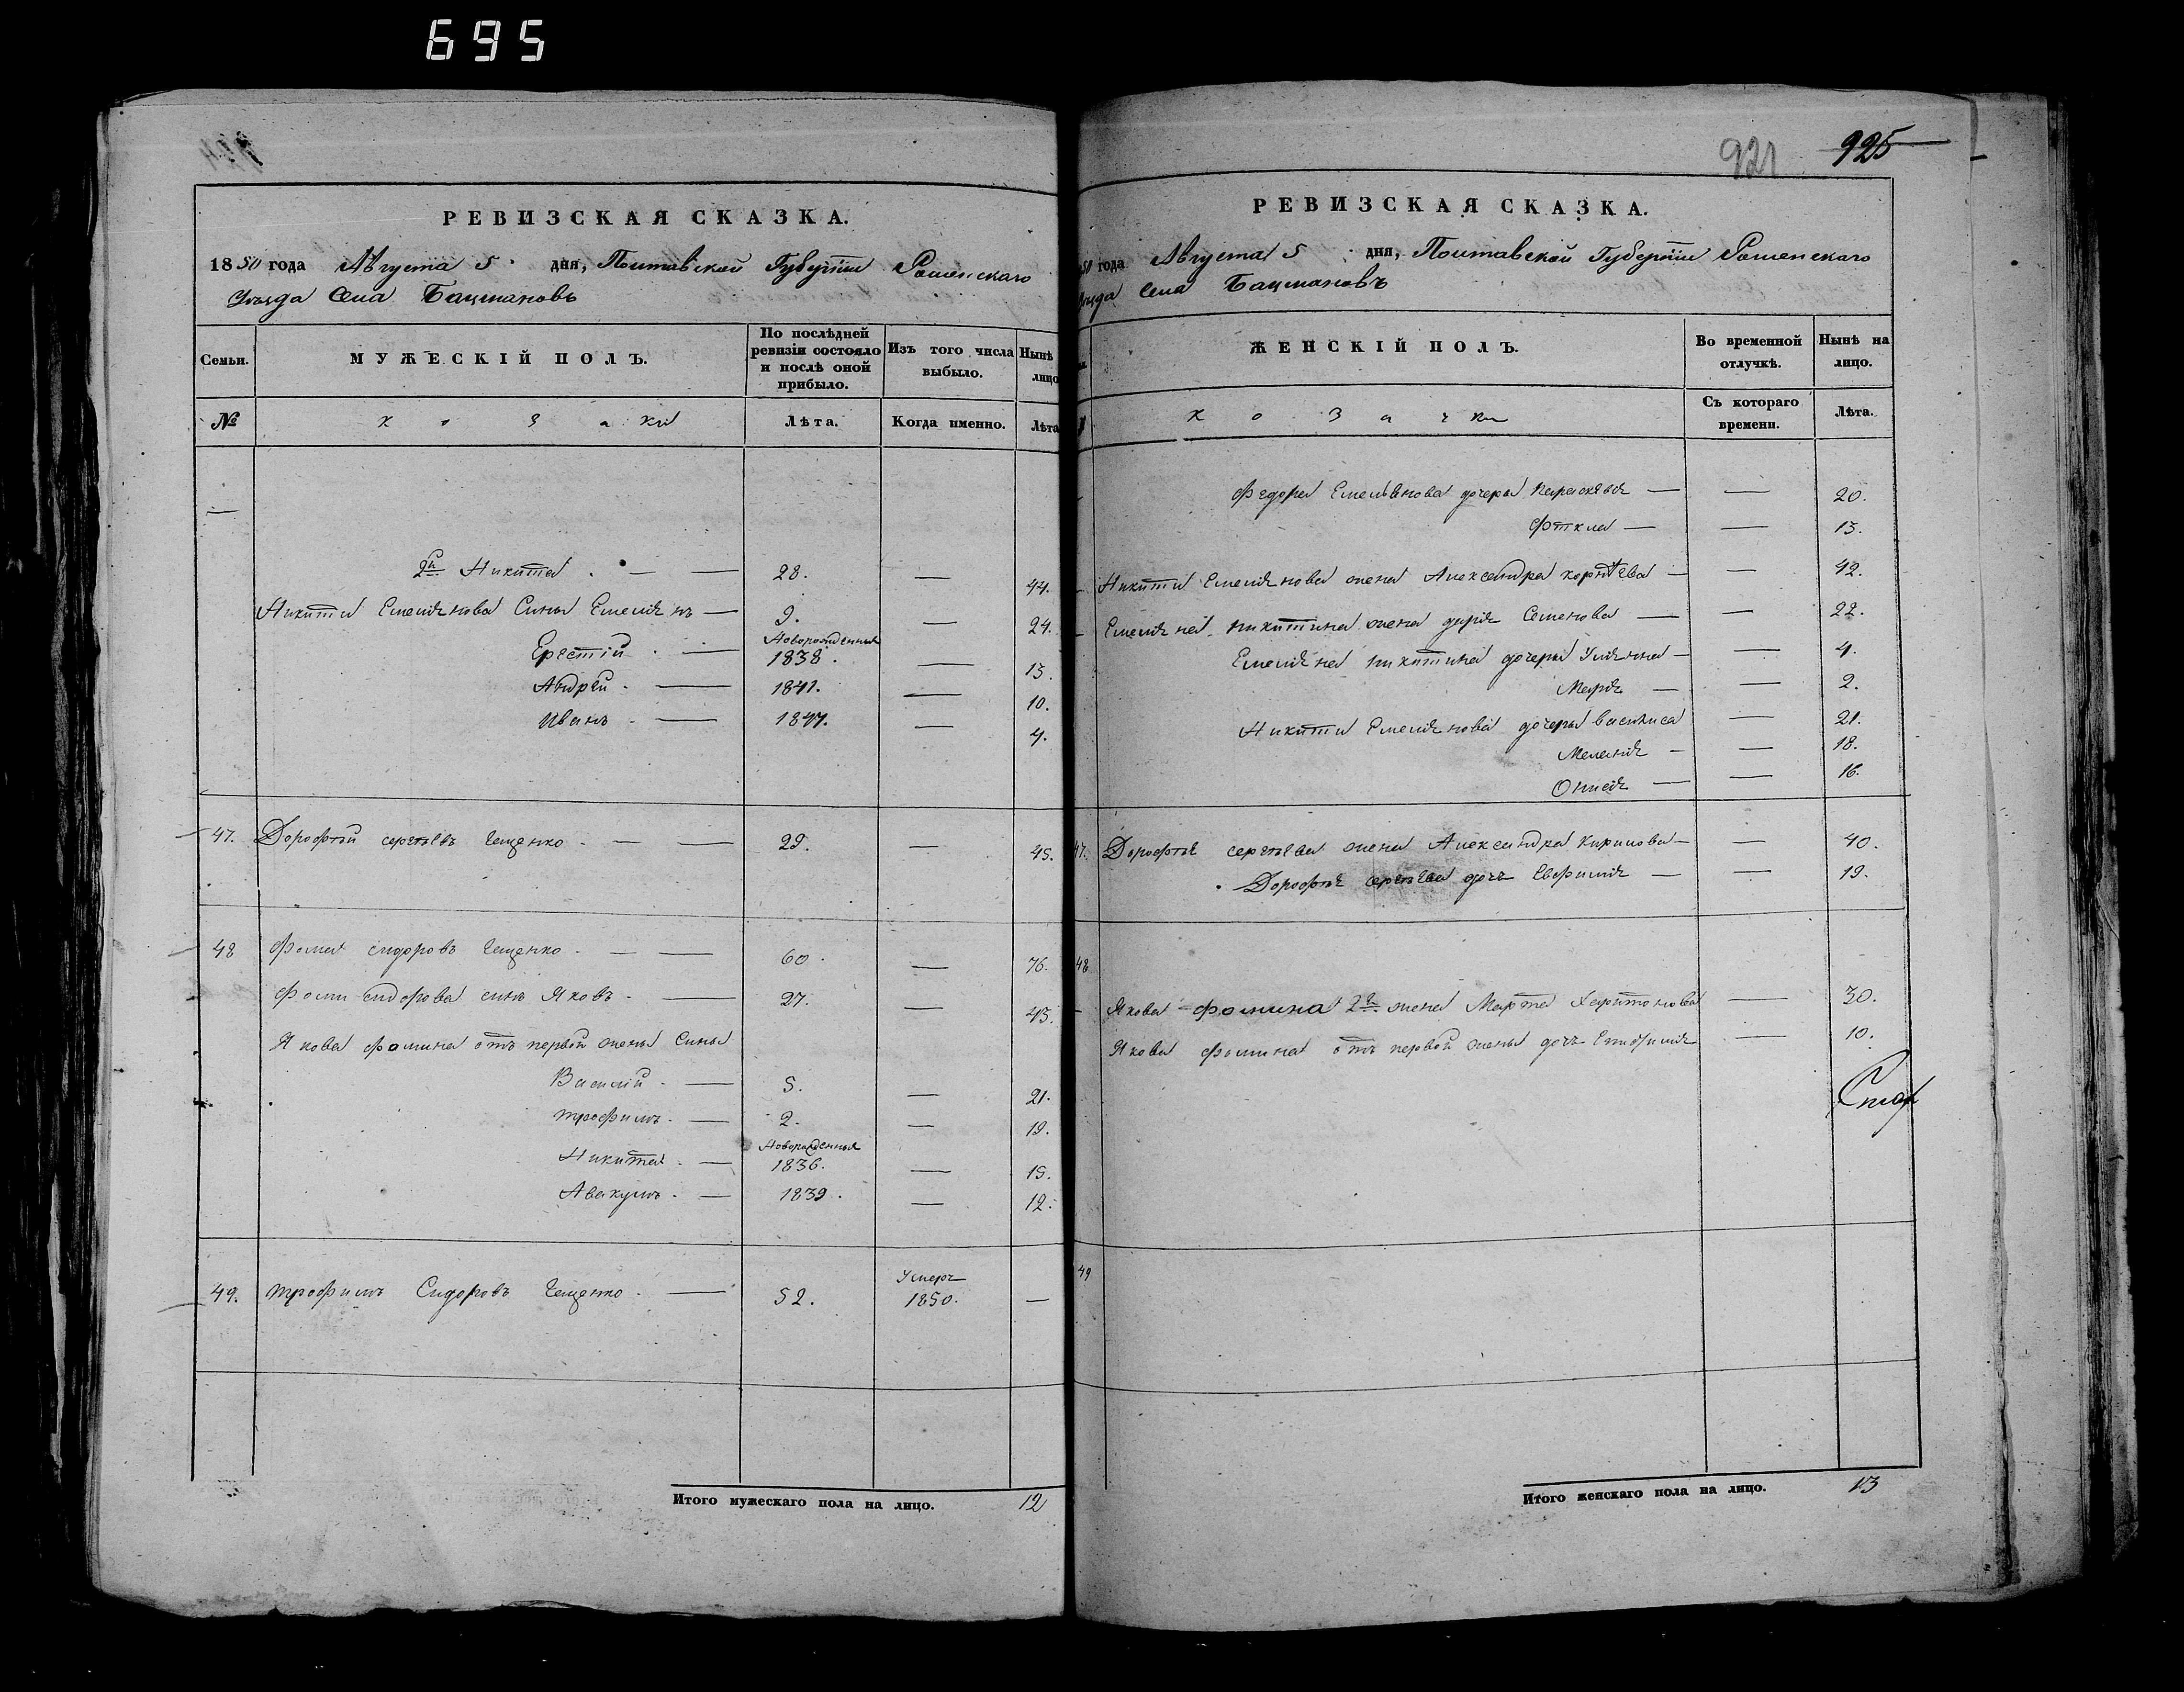 695
РЕВИЗСКАЯ СКАЗКА.
1850 года Августа 5 дня, Полтавской Губерніи Роменскаго
Уѣзда Села Бацмановъ
Семьи. МУЖЕСКІЙ ПОЛЪ. По послѣдней ревизіи состояло и послѣ оной прибыло. Изъ того числа выбыло. Нынѣ лицо
№ козаки Лѣта. Когда именно. Лѣта
—
2й Никита — 28. — 44.
Никиты Емеліянова Сыны Емеліянъ — 9. — 24.
Новорожденныя
Ерестій — 1838. — 13.
Андрей — 1841. — 10.
Иванъ — 1847. — 4.
47. Дорофѣй сергѣевъ Гещенко — 29. — 45.
48 Фома сидоровъ Гещенко — 60. — 76.
Фомы сидорова сынъ Яковъ — 27. — 43.
Якова Фомина отъ первой жены Сыны
Василій — 5. — 21.
трофимъ — 2. — 19.
Новорожденныя
Никита — 1836. — 15.
Авакумъ — 1839. — 12.
49. трофимъ Сидоровъ Гещенко — 52. Умеръ 1850. —
Итого мужескаго пола на лицо. 12
921 925
РЕВИЗСКАЯ СКАЗКА.
50 года Августа 5 дня, Полтавской Губерніи Роменскаго
Села Бацмановъ
ЖЕНСКІЙ ПОЛЪ. Во временной отлучкѣ. Нынѣ на лицо.
козачки Съ котораго времени. Лѣта.
Федора Емельянова дочеры Параскевія — — 20.
Фткла — — 13.
Никиты Емеліянова жена Александра — — 42.
Емеліяна никитина жена дарія Семенова — — 22.
Емеліяна никитина дочеры Уліянна — — 4.
Марія — — 2.
Никиты Емеліянова дочеры василиса — 21.
Меланія — — 18.
— — 16.
47. Дорофѣя сергѣева жена Александра кирилова — — 40.
Дорофѣя сергѣева дочь Евфимія — — 19.
48
Якова Фомина 2я жена Марта Харитонова — 30.
Якова Фомина отъ первой жены дочь — 10.
49
Итого женскаго пола на лицо. 13